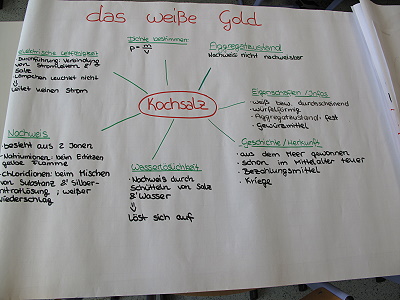 das weiße Gold
Dichte bestimmen:
ρ= m/V
Aggregatzustand
Nachweis nicht nachweisbar
elektrische Leitfähigkeit
Durchführung: Verbindung
von Stromleitern &
Salz
Lämpchen leuchtet nicht
leitet keinen Strom
Kochsalz
Eigenschaften/Infos
- weiß bzw. durchscheinend
- würfelförmig
- Aggregatzustand: fest
- Gewürzmittel
Nachweis
- besteht aus 2 Ionen
- Natriumionen: beim Erhitzen
gelbe Flamme
- Chloridionen: beim Mischen
von Substanz & Silber-
nitratlösung; weißer
Niederschlag
Wasserlöslichkeit
- Nachweis durch
schütteln von Salz
& Wasser
Löst sich auf
Geschichte/Herkunft
- aus dem Meer gewonnen
- schon im Mittelalter teuer
- Bezahlungsmittel
- Kriege